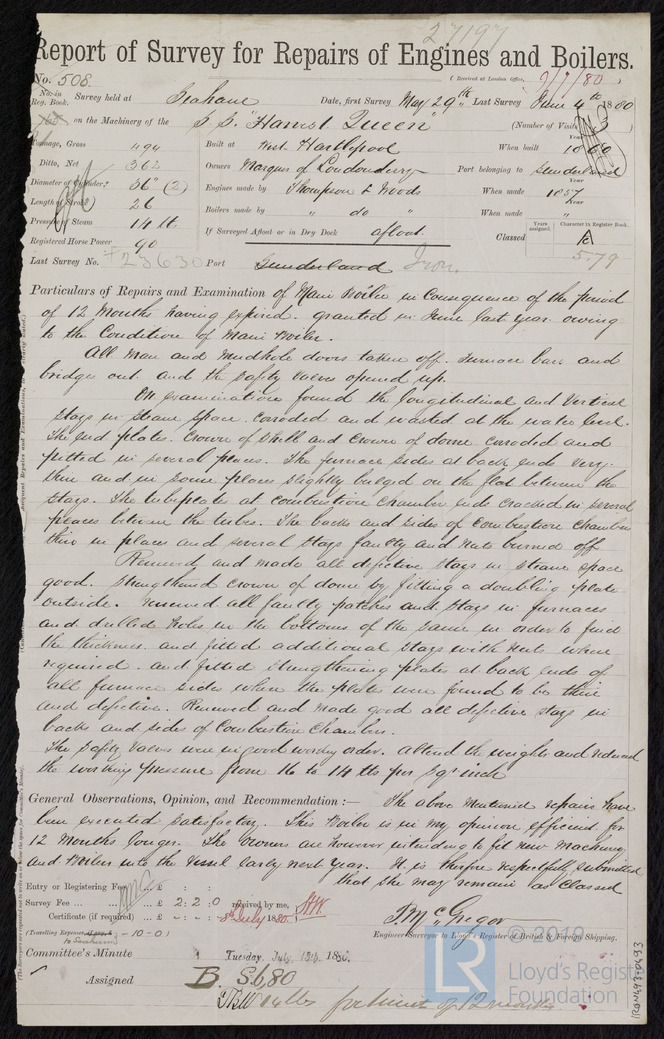 27197
Report of Survey for Repairs of Engines and Boilers.
(Received at London Office, 9/7/80)
No. 508
No. in Reg. Book. Survey held at Seaham Date, first Survey May 29th Last Survey June 4th 1880
on the Machinery of the S.S. "Harriet Queen" (Number of Visits 3)
Tonnage, Gross 494 Built at West Hartlepool When built
Ditto, Net 362 Owners Marquis of Londonderry Port belonging to Sunderland
Diameter of Cylinder? 36" (2) Engines made by Thompson & Woods When made
Length of Stroke 26 Boilers made by " do " When made "
Pressure of Steam 14 lb. If Surveyed Afloat or in Dry Dock afloat. Classed
Years assigned. Character in Register Book.
A
5.79
Registered Horse Power 90
Last Survey No. 23630 Port Sunderland Iron.
Particulars of Repairs and Examination of Main Boiler in Consequence of the period
of 12 Months having expired. granted in June last year owing
to the Condition of Main Boiler.
All Man and Mudhole doors taken off. Furnace bars and
bridges out. and the Safety Valves opened up.
On examination found the longitudinal and Vertical
Stays in Steam Space. Corroded and wasted at the water level.
The end plates. Crown of Shell and Crown of dome Corroded and
pitted in several places. The furnace sides at back ends very
thin and in some places slightly bulged on the flat between the
Stays. The tubeplate at combustion chamber ends cracked in several
places between the tubes. The backs and sides of Combustion Chamber
thin in places and several Stays faulty and Nuts burned off
Renewed and made all defective Stays in steam space
good. Strengthened crown of dome by fitting a doubling plate
outside. renewed all faulty patches and Stays in furnaces
and drilled holes in the bottoms of the same in order to find
the thickness. and fitted additional Stays with Nuts where
required. and fitted strengthening plates at back ends of
all furnace sides where the plates were found to be thin
and defective. Renewed and made good all defective stays in
backs and sides of Combustion Chamber.
The Safety Valves were in good working order. altered the weights and reduced
the working pressure from 16 to 14 lbs per sqr inch
General Observations, Opinion, and Recommendation:— The above mentioned repairs have
been executed satisfactory. This Boiler is in my opinion efficient for
12 Months longer. The owners are however intending to fit new Machinery
and Boilers into the Vessel early next Year. It is therefore respectfully submitted
that she may remain as Classed
Entry or Registering Fee £ : :
Survey Fee £ 2 : 2 : 0 received by me,
Certificate (if required) £ - : - : 5th July 1880. HW.
(Travelling Expenses - 10 - 0)
to Seaham
P. McGregor
Engineer Surveyor to Lloyd's Register of British & Foreign Shipping.
Committee's Minute Tuesday, July, 13th, 1880.
Assigned B. S 6,80
14 lbs for limit of 12 months
© 2019
LR
Lloyd's Register
Foundation